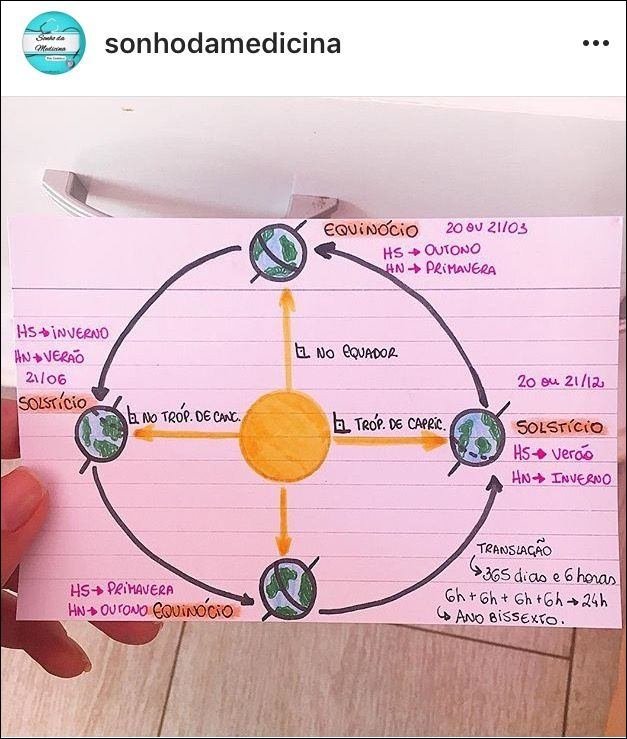 Sonho da
Medicina
sonhodamedicina
EQUINÓCIO 20 OU 21/03
HS → OUTONO
HN → PRIMAVERA
HS → INVERNO
HN → VERÃO
21/06
SOLSTÍCIO
NO EQUADOR
NO TRÓP. DE CANC.
TRÓP. DE CAPRIC.
20 ou 21/12
SOLSTÍCIO
HS → verão
HN → INVERNO
HS → PRIMAVERA
HN → OUTONO EQUINÓCIO
TRANSLAÇÃO
↳ 365 dias e 6 horas
6h + 6h + 6h + 6h → 24h
↳ ANO BISSEXTO.